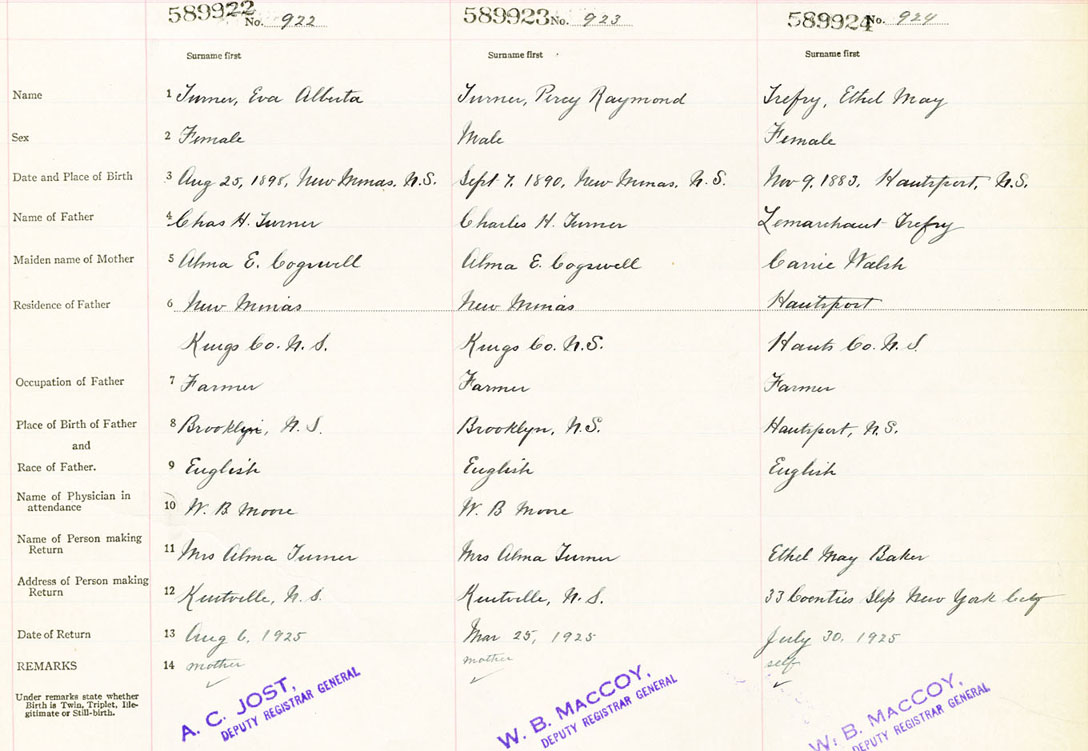 589922 No. 922 589923 No. 923 589924 No. 924
Surname first Surname first Surname first
Name 1 Turner, Eva Alberta Turner, Percy Raymond Trefry, Ethel May
Sex 2 Female Male Female
Date and Place of Birth 3 Aug 25, 1898, New Minas, N.S. Sept 7, 1890, New Minas, N.S. Nov 9, 1883, Hantsport, N.S.
Name of Father 4 Chas H. Turner Charles H. Turner Lemarchant Trefry
Maiden name of Mother 5 Alma E. Cogswell Alma E. Cogswell Carrie Walsh
Residence of Father 6 New Minas New Minas Hantsport
Kings Co. N.S. Kings Co. N.S. Hants Co. N.S
Occupation of Father 7 Farmer Farmer Farmer
Place of Birth of Father 8 Brooklyn, N.S. Brooklyn, N.S. Hantsport, N.S.
and
Race of Father. 9 English English English
Name of Physician in
attendance 10 W. B Moore W. B Moore
Name of Person making
Return 11 Mrs Alma Turner Mrs Alma Turner Ethel May Baker
Address of Person making
Return 12 Kentville, N.S. Kentville, N.S. 33 Coenties Slip New York City
Date of Return 13 Aug 6, 1925 Mar 25, 1925 July 30, 1925
REMARKS 14 mother mother self
Under remarks state whether
Birth is Twin, Triplet, Ille-
gitimate or Still-birth.
A. C. JOST, W. B. MacCOY, W. B. MacCOY,
DEPUTY REGISTRAR GENERAL DEPUTY REGISTRAR GENERAL DEPUTY REGISTRAR GENERAL